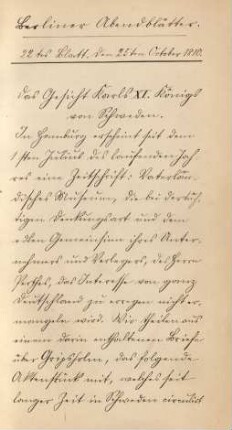 Berliner Abendblätter.
22tes Blatt, Den 25ten October 1810.
Das Gesicht Karls XI. Königs
von Schweden.
In Hamburg erscheint seit dem
1sten Julius des laufenden Jah
res eine Zeitschrift: Vaterlän
disches Museum, die bei der tüch
tigen Denkungsart und dem
edlen Gemeinsinn ihres Unter
nehmers und Verlegers, des Herrn
Perthes, das Interesse von ganz
Deutschland zu erregen nicht er
mangeln wird. Wir theilen aus
einem darin enthaltenen Briefe
über Gripsholm, das folgende
Aktenstück mit, welches seit
langer Zeit in Schweden circulirt